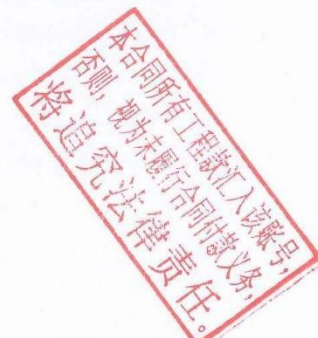 本合同所有工程款汇入该账号，
否则，视为未履行合同付款义务，
将追究法律责任。